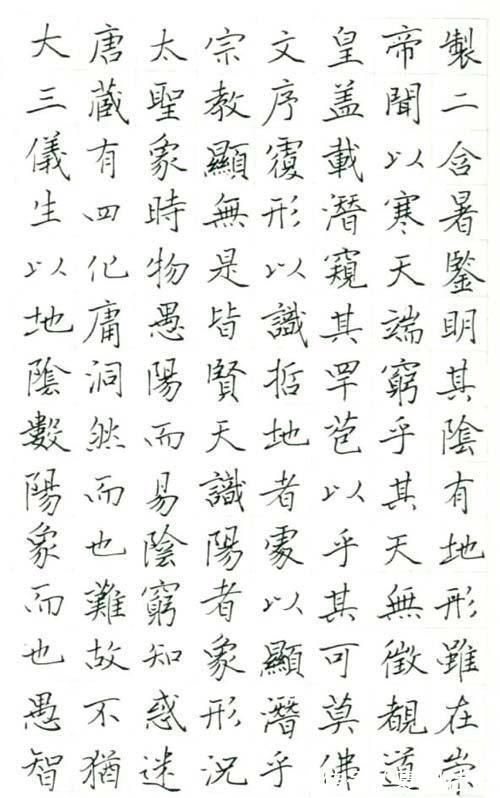 大唐太宗文皇帝製
三藏聖教序蓋聞二
儀有象顯覆載以含
生四時無形潛寒暑
以化物是以窺天鑒
地庸愚皆識其端明
陰洞陽賢哲罕窮其
數然而天地苞乎陰
陽而易識者以其有
象也陰陽處乎天地
而難窮者以其無形
也故知象顯可徵雖
愚不惑形潛莫覩在
智猶迷況乎佛道崇